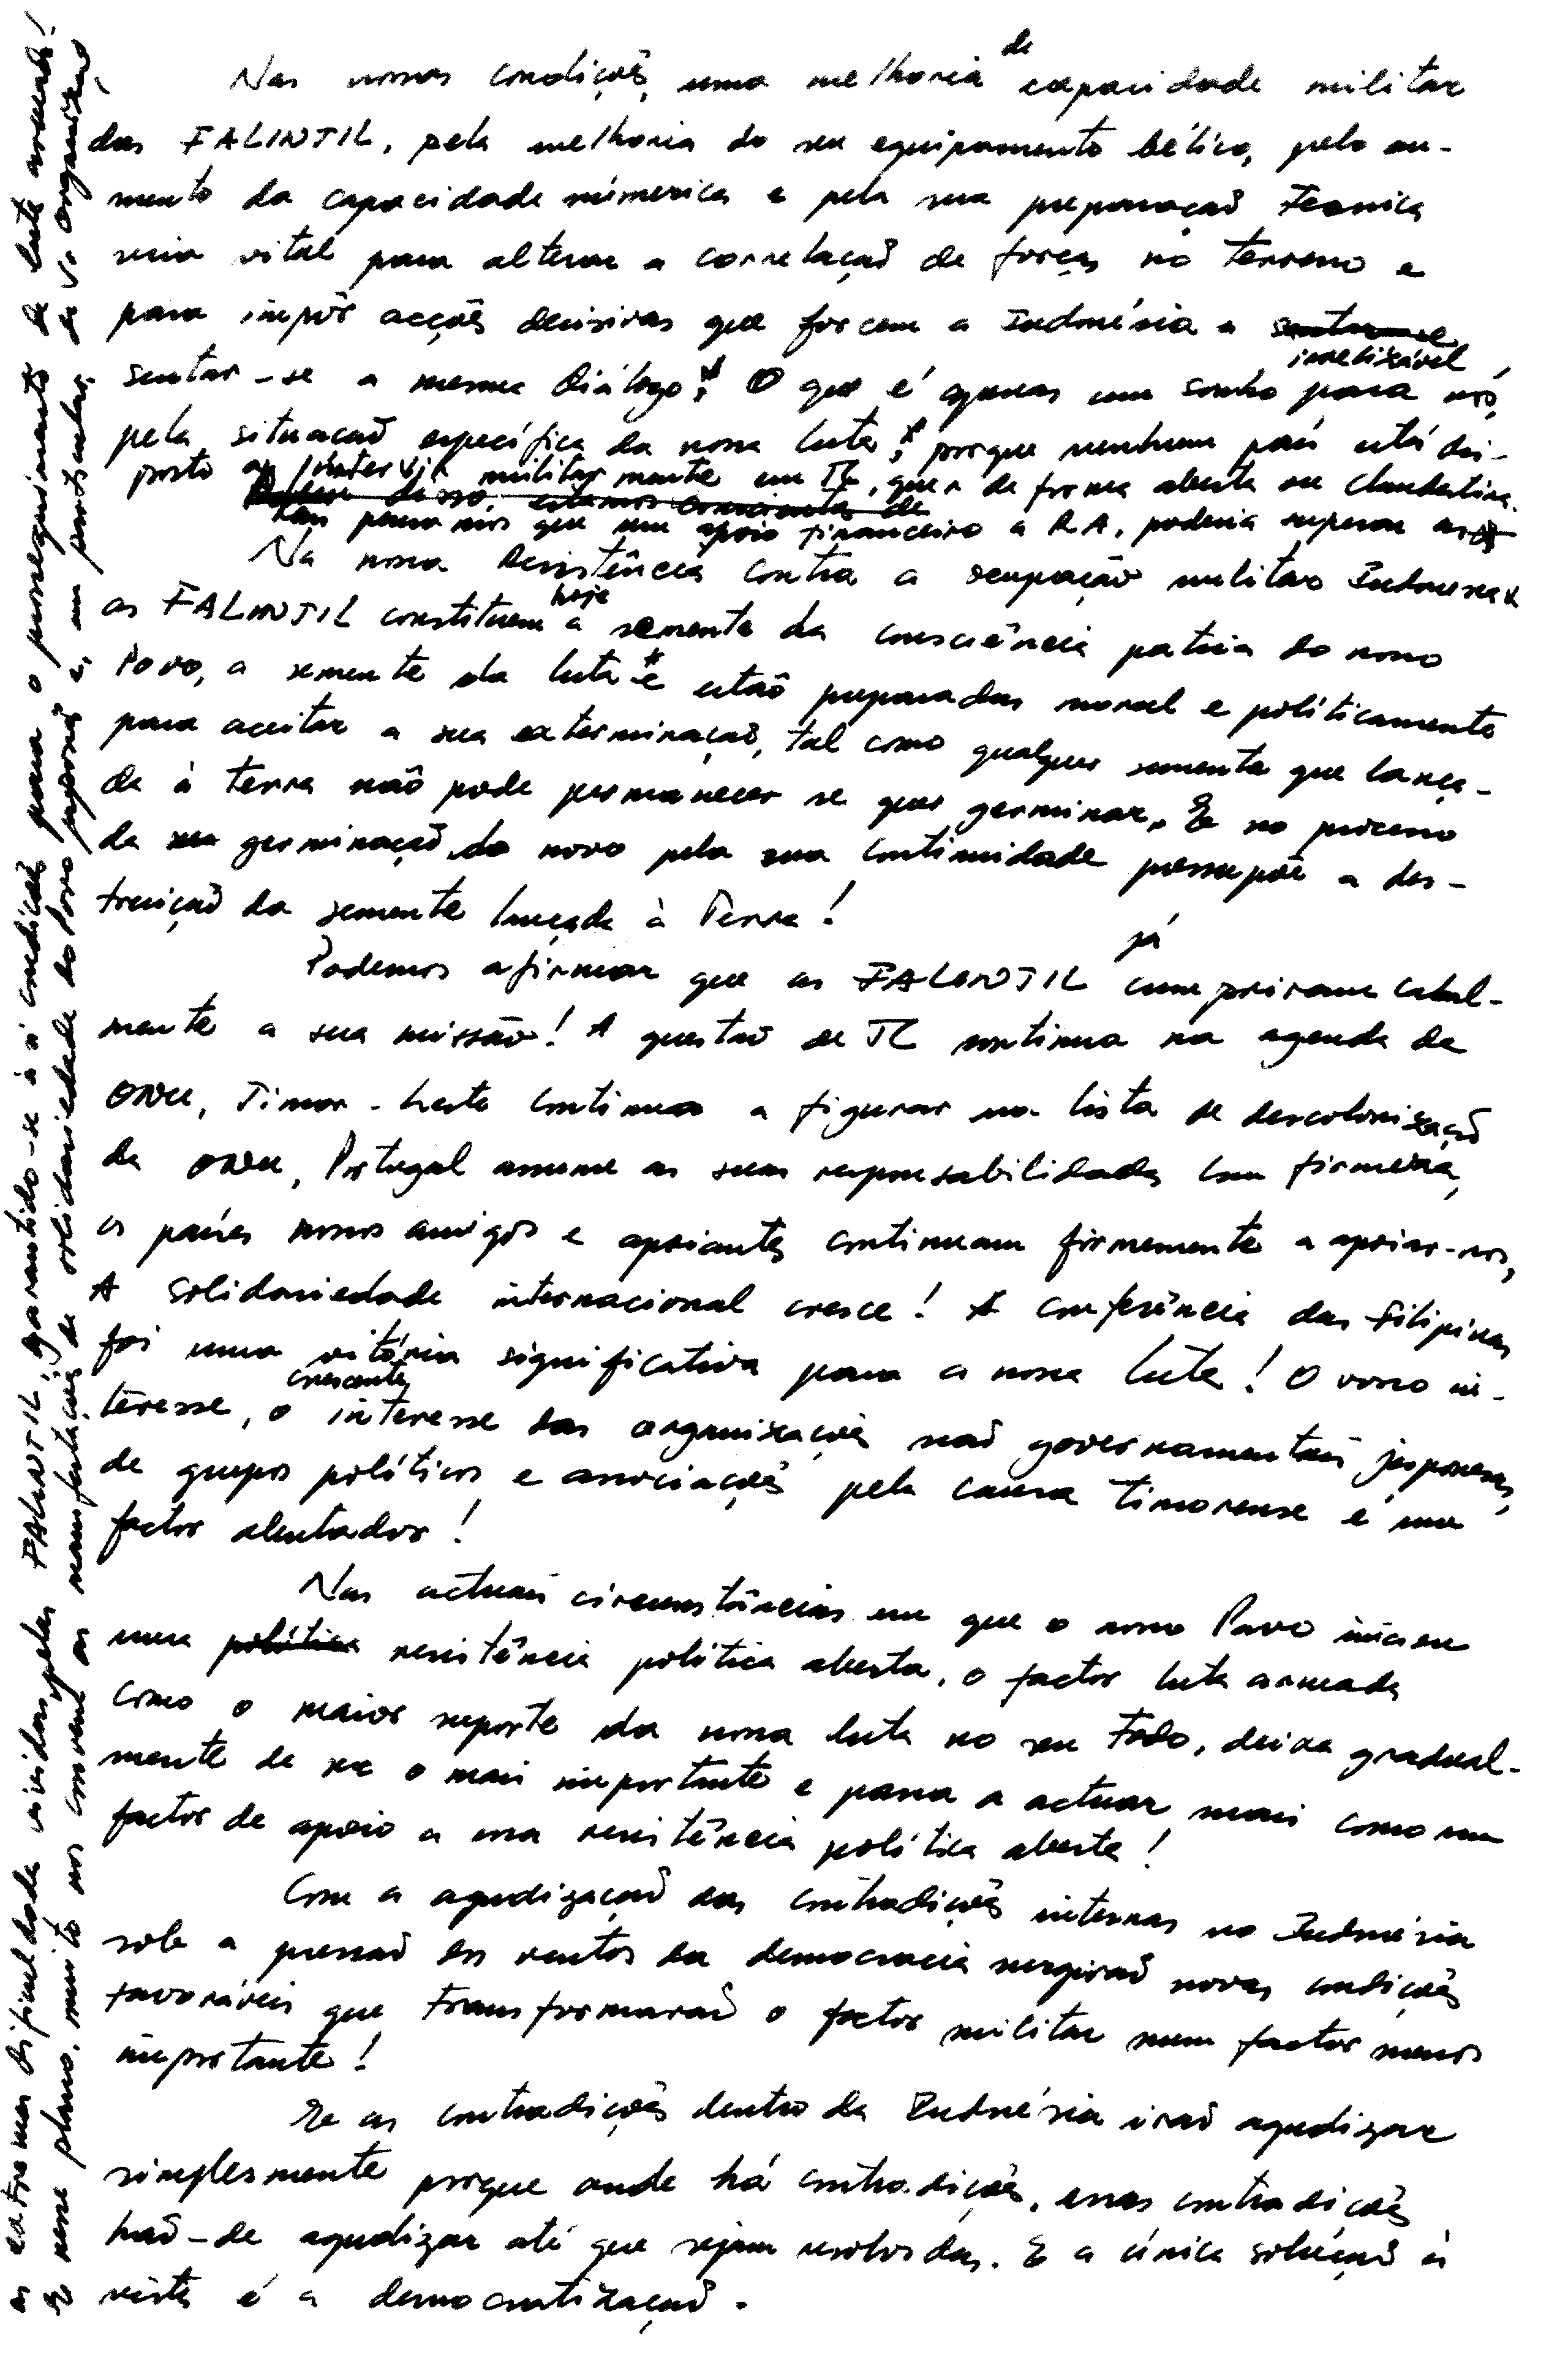 Nas nossas condições, uma melhoria de capacidade militar
das FALINTIL, pela melhoria do seu equipamento bélico, pelo au-
mento da capacidade númerica e pela sua preparação técnica
seria vital para alterar a correlação de forças no terreno e
para impôr acções decisivas que forcem a Indonésia a
sentar-se a mesma diálogo! O que é apenas um sonho irrealizável para nós,
pela situação específica da nossa luta, porque nenhum país está dis-
posto a intervir militarmente em TL, quer de forma aberta ou clandestina.
pensamos que um apoio financeiro a RA, poderia superar
Na nossa Resistência contra a ocupação militar Indonesia
as FALINTIL constituem hoje a semente da consciência patria do nosso
Povo, a semente da luta e estão preparadas moral e políticamente
para aceitar a sua exterminação, tal como qualquer semente que lança-
da à terra não pode permanecer se quer germinar. E no processo
da sua germinação do novo pela sua continuidade pressupõe a des-
truição da semente lançada à Terra!
Podemos afirmar que as FALINTIL já cumpriram cabal-
mente a sua missão! A questão de TL continua na agenda da
ONU, Timor-Leste continua a figurar na lista de descolonização
da ONU, Portugal assume as suas responsabilidades com firmeza,
os países nossos amigos e apoiantes continuam firmemente a apoiar-nos,
A solidariedade internacional cresce! A Conferência das Filipinas
foi uma vitória significativa para a nossa luta! O vosso in-
teresse, o crescente interesse das organizações não governamentais japonesas,
de grupos políticos e associações pela causa timorense é um
factor alentador!
Nas actuais circunstâncias em que o nosso Povo iniciou
uma política resistência política aberta, o factor luta armada
como o maior suporte da nossa luta no seu todo, deixa gradual-
mente de ser o mais importante e passa a actuar mais como um
factor de apoio a essa resistência política aberta!
Com a agudização das contradições internas na Indonésia
sob a pressão dos ventos da democracia surgirão novas condições
favoráveis que transformarão o factor militar num factor menos
importante!
E as contradições dentro da Indonésia irão agudizar
simplesmente porque onde há contradições, essas contradições
hão-de agudizar até que sejam resolvidas. E a única solução à
vista é a democratização.
as extremas dificuldades vividas pelas FALINTIL, garantindo-se à si condições para o prosseguimento da luta armada!
E nesse plano, muito nos comovem as manifestações de solidariedade do Povo japonês e, em particular, da v. organização